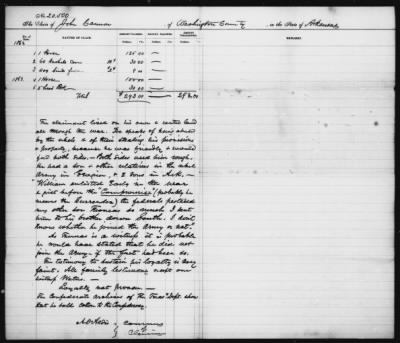 No 20,580
The Claim of John Cannon of Washington County in the State of Arkansas
No. of Item. NATURE OF CLAIM. AMOUNT CLAIMED. AMOUNT ALLOWED. AMOUNT DISALLOWED. REMARKS.
1862
1 1 Horse 125.00
2 60 bushels Corn 30.00
3
1863. 1 Horse 100.00
5 30.00
Total $293.00 293.00
The claimant lived on his own & rented land
all through the war. He speaks of being abused
by the rebels & of their stealing his provision
& property, because he was feeble & would
feed both sides. – Both sides used him rough.
He had a son & other relations in the rebel
Army in Virginia, & 2 sons in Ark. –
William enlisted Early in the war
& just before the "Compromise" (probably he
means the Surrender) the federals pestered
my other son Thomas so much I sent
him to his brother down South. I don't
know whether he joined the Army or not."
As Thomas is a witness it is probable
he would have stated that he did not
join the Army, if the fact had been so.
The testimony to sustain his loyalty is very
faint. All family testimony except one
witness
Loyalty not proven –
The Confederate archives of the Treas' Dept. show
that he sold cotton to the Confederacy.
A.O. Aldis
Commrs
of
Claims